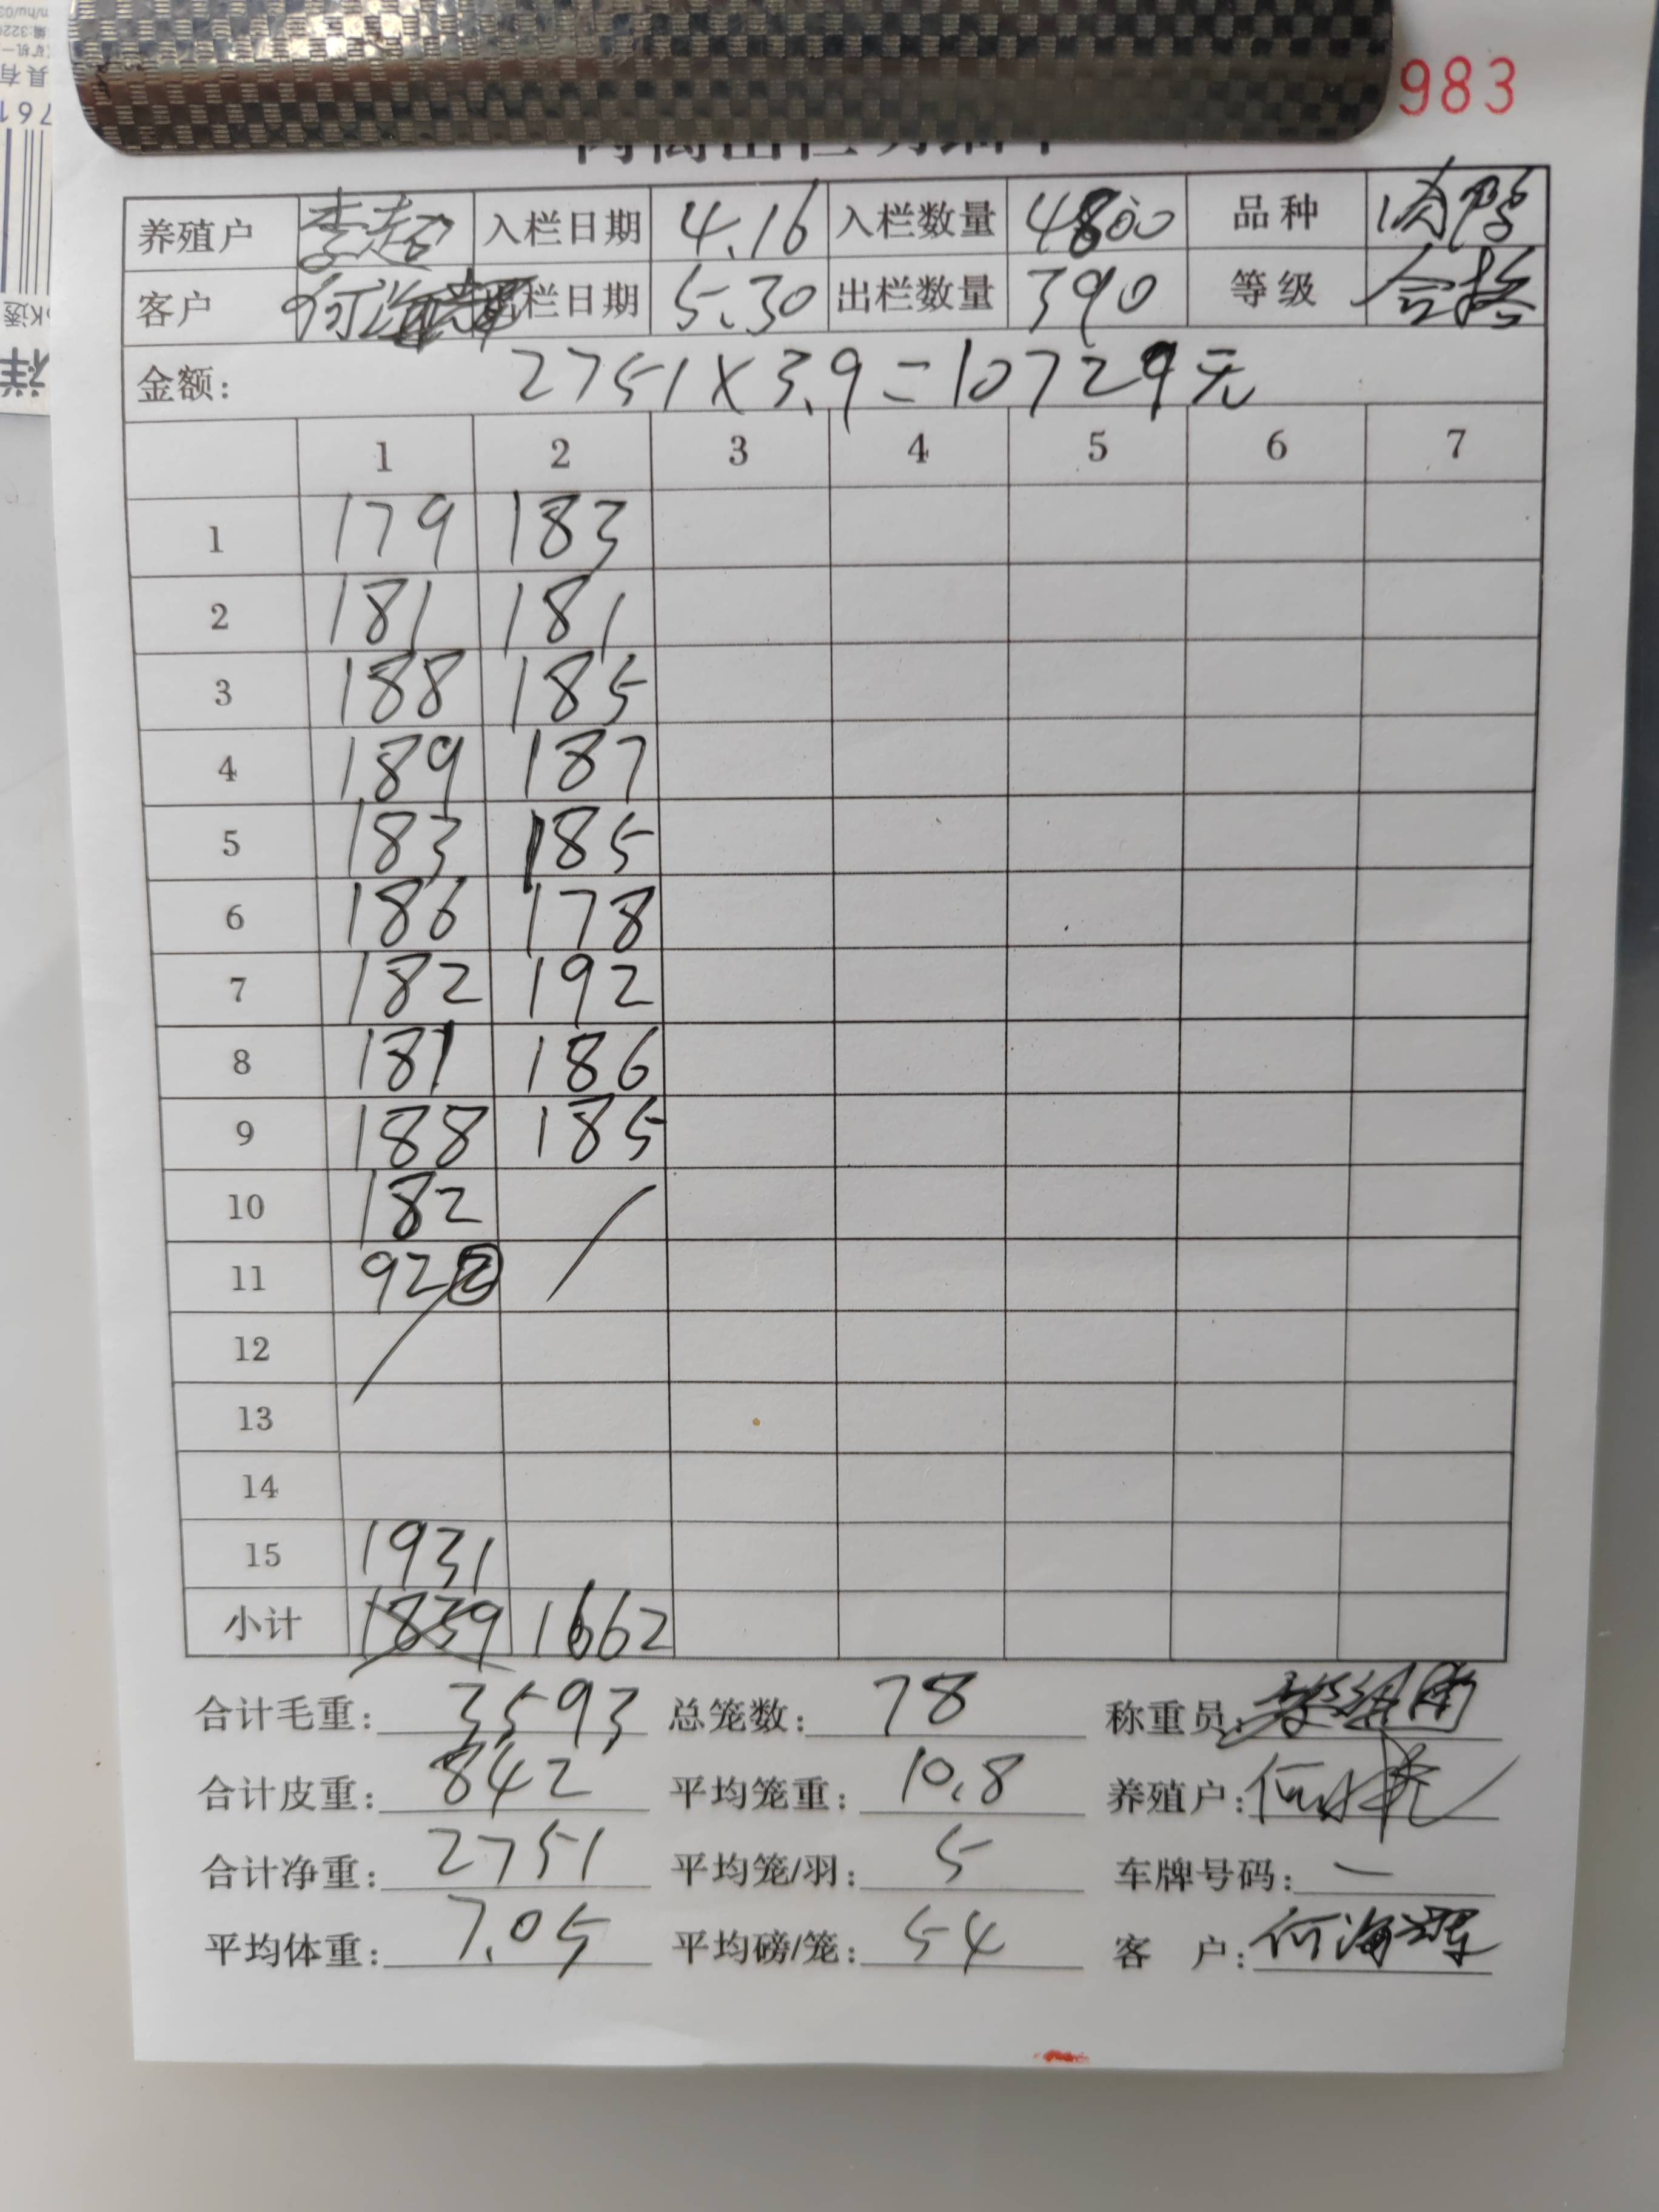 983
养殖户 李超 入栏日期 4.16 入栏数量 4800 品种 肉鸭
客户 何海 栏日期 5.30 出栏数量 390 等级 合格
金额: 2751×3.9=10729元
1 2 3 4 5 6 7
1 179 183
2 181 181
3 188 185
4 189 187
5 183 185
6 186 178
7 182 192
8 181 186
9 188 185
10 182
11 92 ②
12
13
14
15 1931
小计 1839 1662
合计毛重: 3593 总笼数: 78 称重员:
合计皮重: 842 平均笼重: 10.8 养殖户:
合计净重: 2751 平均笼/羽: 5 车牌号码: 一
平均体重: 7.05 平均磅/笼: 54 客 户: 何海辉